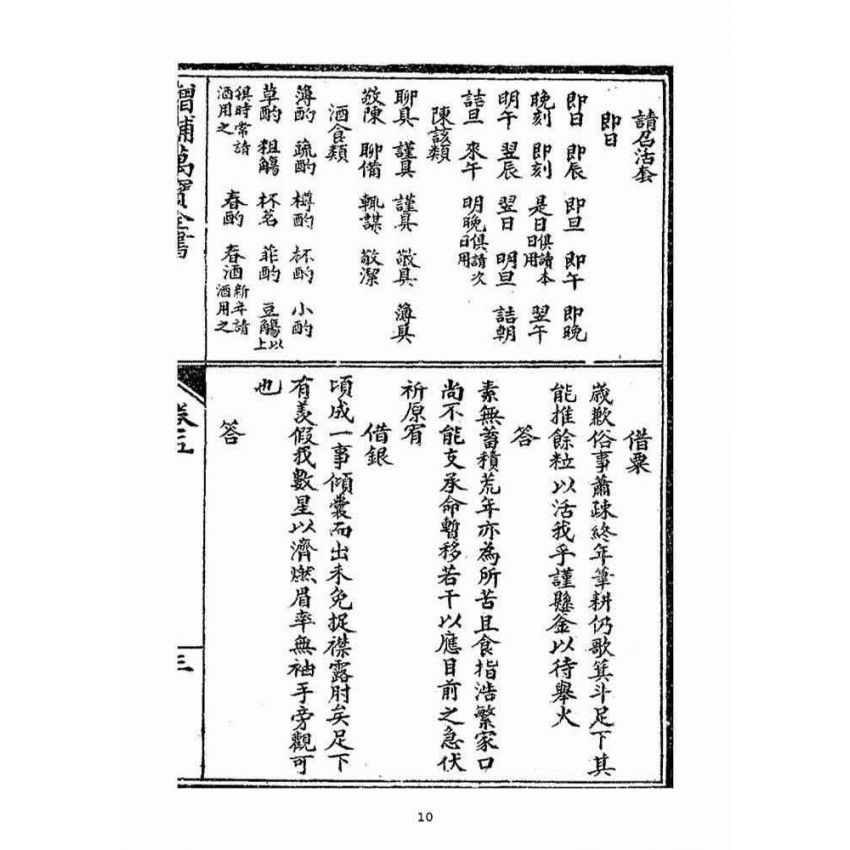 請召活套
即日
即日 即辰 即旦 即午 即晚
晚刻 即刻 是日俱請本日用 翌午
明午 翌辰 翌日 明旦 詰朝
詰旦 來午 明晚俱請次日用
陳設類
聊具 謹具 謹具 敬具 薄具
敬陳 聊備 輒謀 敬潔
酒食類
薄酌 疏酌 樽酌 杯酌 小酌
草酌 粗觴 杯茗 菲酌 豆觴以上
俱時常請酒用之 春酌 春酒新年請酒用之
借粟
歲歉俗事蕭疎終年筆耕仍歌箕斗足下其
能推餘粒以活我乎謹懸釜以待舉火
答
素無蓄積荒年亦為所苦且食指浩繁家口
尚不能支承命暫移若干以應目前之急伏
祈原宥
借銀
頃成一事傾囊而出未免捉襟露肘矣足下
有羡假我數星以濟燃眉率無袖手旁觀可
也
答
增補萬寶全書
卷五
三
10